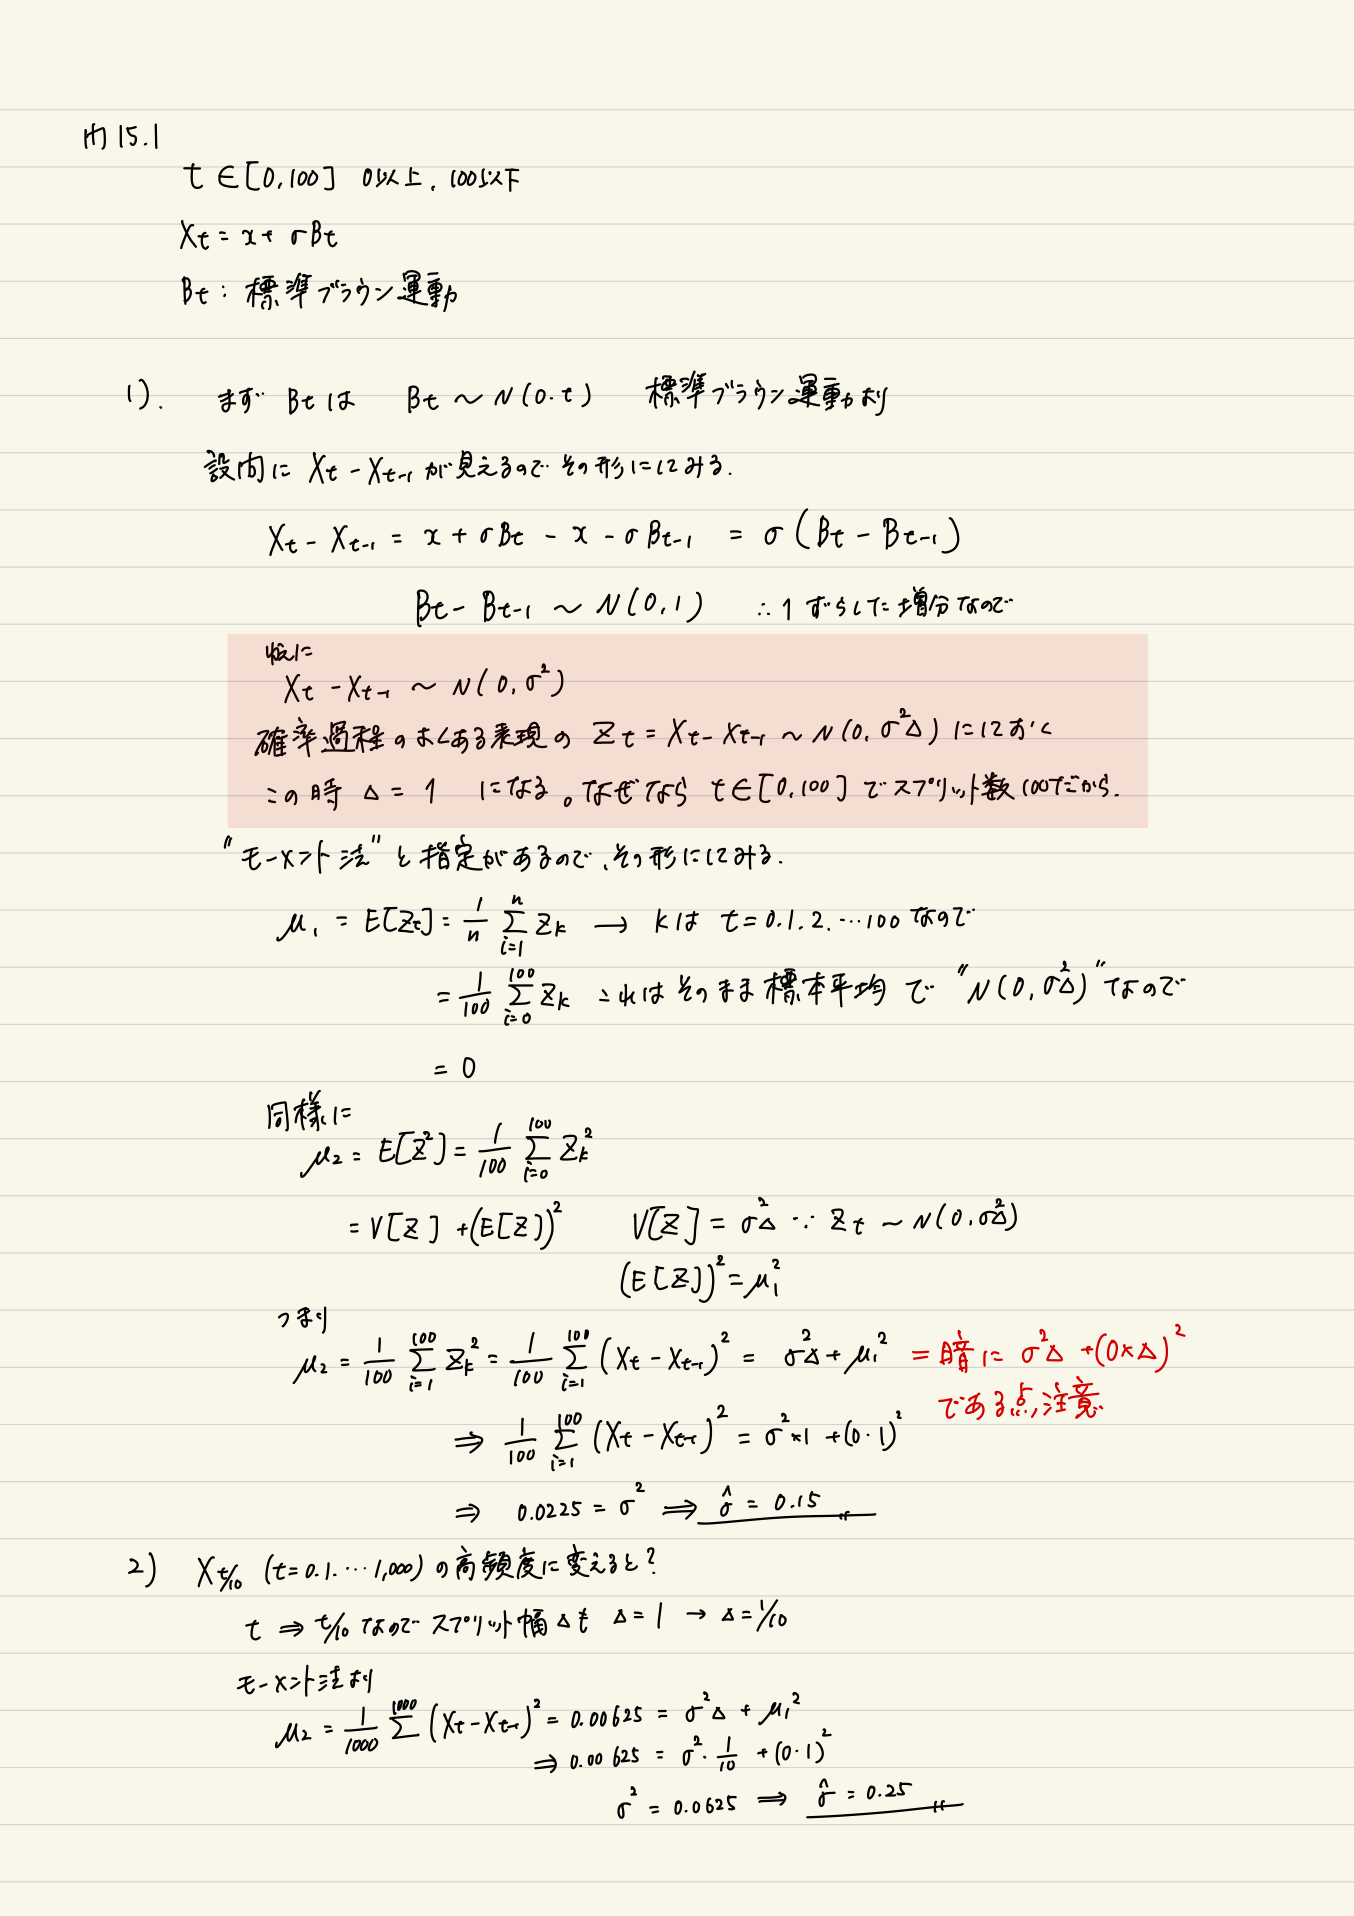 問15.1
t ∈ [0,100] 0以上、100以下
Xt = x + σBt
Bt : 標準ブラウン運動
1). まず Btは Bt ~ N(0.t) 標準ブラウン運動より
設問に Xt - Xt-1 が見えるので その形にしてみる.
Xt - Xt-1 = x + σBt - x - σBt-1 = σ(Bt - Bt-1)
Bt - Bt-1 ~ N(0,1) ∴ 1ずらした増分なので
故に
Xt - Xt-1 ~ N(0,σ²)
確率過程のよくある表現の Zt = Xt - Xt-1 ~ N(0,σ²Δ) にしておく
この時 Δ = 1 になる。なぜなら t∈[0,100] でスプリット数100だから.
"モーメント法" と指定があるので、その形にしてみる.
μ1 = E[Zt] = 1/n Σ_{i=1}^{n} Zk → kは t=0.1.2.…100 なので
= 1/100 Σ_{i=0}^{100} Zk これはそのまま標本平均 で "N(0,σ²Δ)" なので
= 0
同様に
μ2 = E[Z²] = 1/100 Σ_{i=0}^{100} Zk²
= V[Z] + (E[Z])² V[Z] = σ²Δ ∵ Zt ~ N(0,σ²Δ)
(E[Z])² = μ1²
つまり
μ2 = 1/100 Σ_{i=1}^{100} Zk² = 1/100 Σ_{i=1}^{100} (Xt - Xt-1)² = σ²Δ + μ1² = 暗に σ²Δ + (0×Δ)²
である点、注意
⇒ 1/100 Σ_{i=1}^{100} (Xt - Xt-1)² = σ²×1 + (0·1)²
⇒ 0.0225 = σ² ⇒ σ̂ = 0.15
2) Xt/10 (t=0.1.…1,000) の高頻度に変えると?
t ⇒ t/10 なので スプリット幅Δも Δ=1 → Δ=1/10
モーメント法より
μ2 = 1/1000 Σ^{1000} (Xt - Xt-1)² = 0.00625 = σ²Δ + μ1²
⇒ 0.00625 = σ²·1/10 + (0·1)²
σ² = 0.0625 ⇒ σ̂ = 0.25